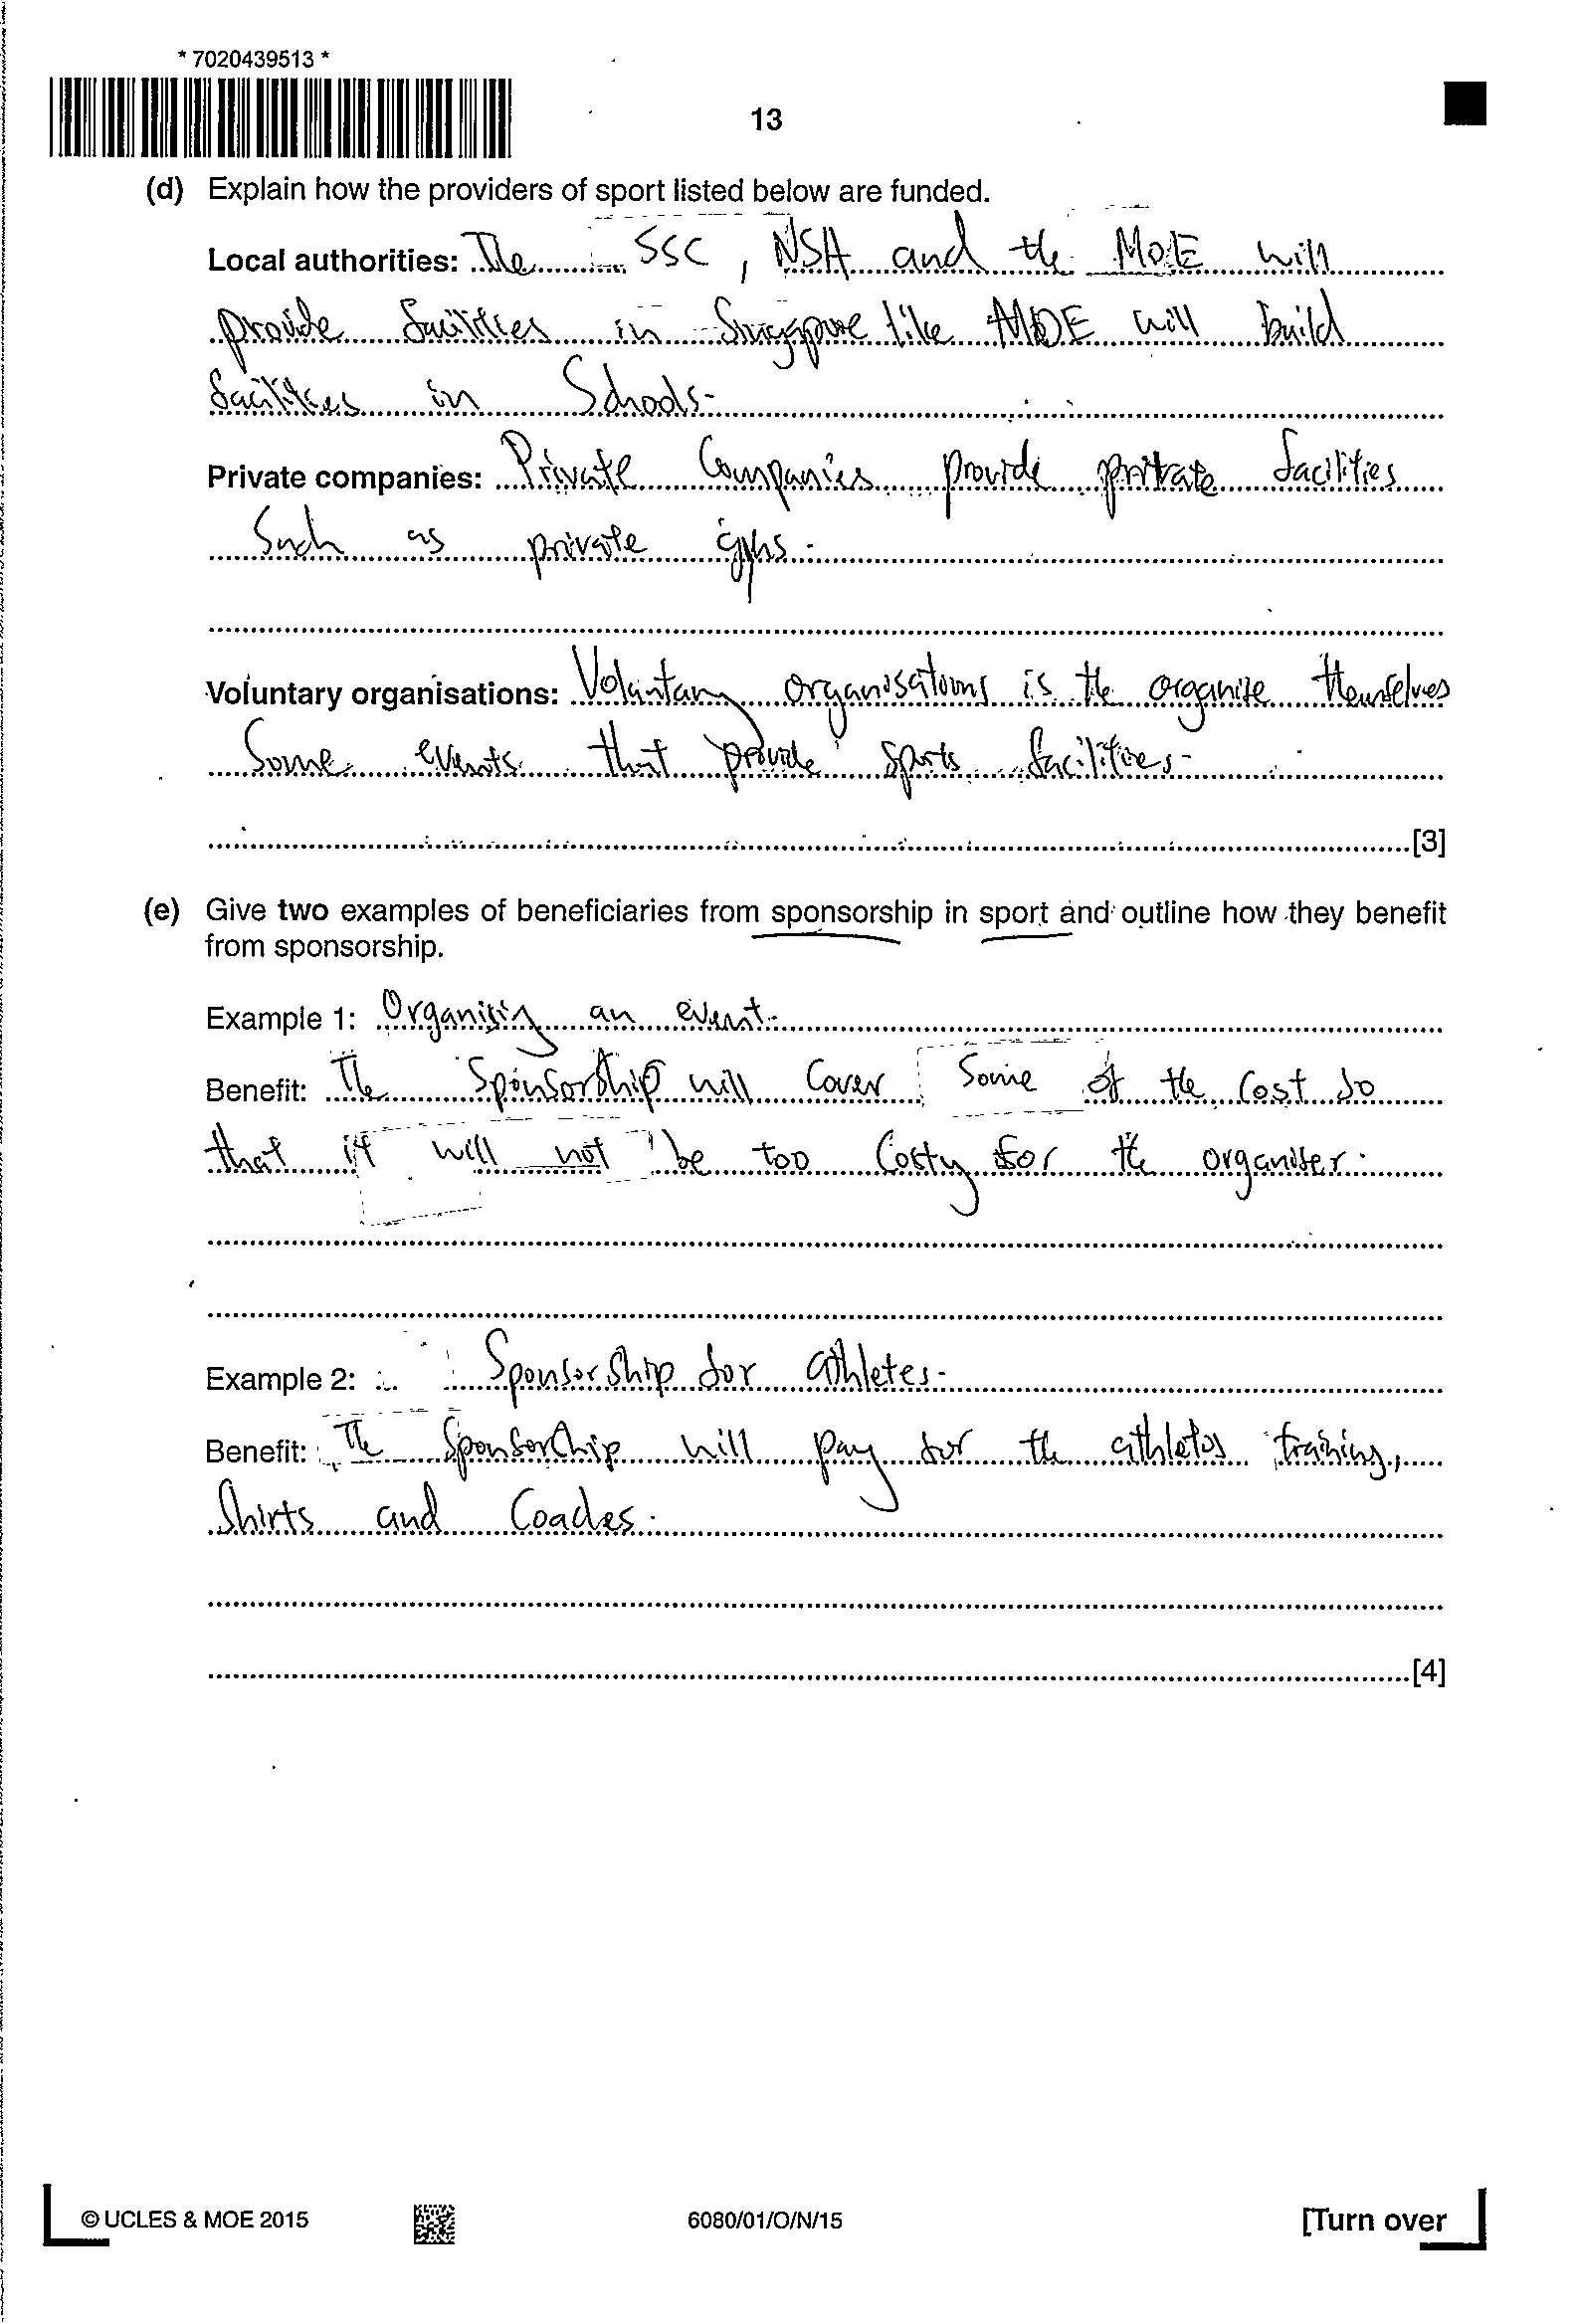 * 7020439513 *
13
(d) Explain how the providers of sport listed below are funded.
Local authorities: The SSC, NSA and the MOE will
provide facilities in Singapore like MOE will build
facilities in Schools.
Private companies: Private Companies provide private facilities
Such as private
Voluntary organisations: Voluntary organisations is the organise themselves
Some events that provide sports facilities.
[3]
(e) Give two examples of beneficiaries from sponsorship in sport and outline how they benefit
from sponsorship.
Example 1: Organising an event.
Benefit: The Sponsorship will Cover Some of the Cost So
that it will not be too Costy for the organiser.
Example 2: Sponsorship for athletes.
Benefit: The Sponsorship will pay for the athletes training,
Shirts and Coaches.
[4]
© UCLES & MOE 2015
6080/01/O/N/15
[Turn over